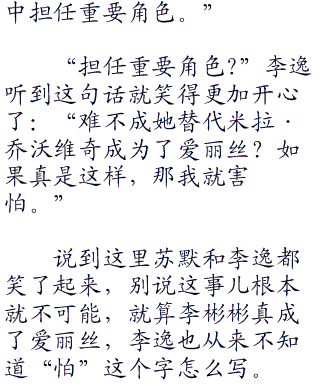 中担任重要角色。”
“担任重要角色?”李逸
听到这句话就笑得更加开心
了：“难不成她替代米拉·
乔沃维奇成为了爱丽丝？如
果真是这样，那我就害
怕。”
说到这里苏默和李逸都
笑了起来，别说这事儿根本
就不可能，就算李彬彬真成
了爱丽丝，李逸也从来不知
道“怕”这个字怎么写。